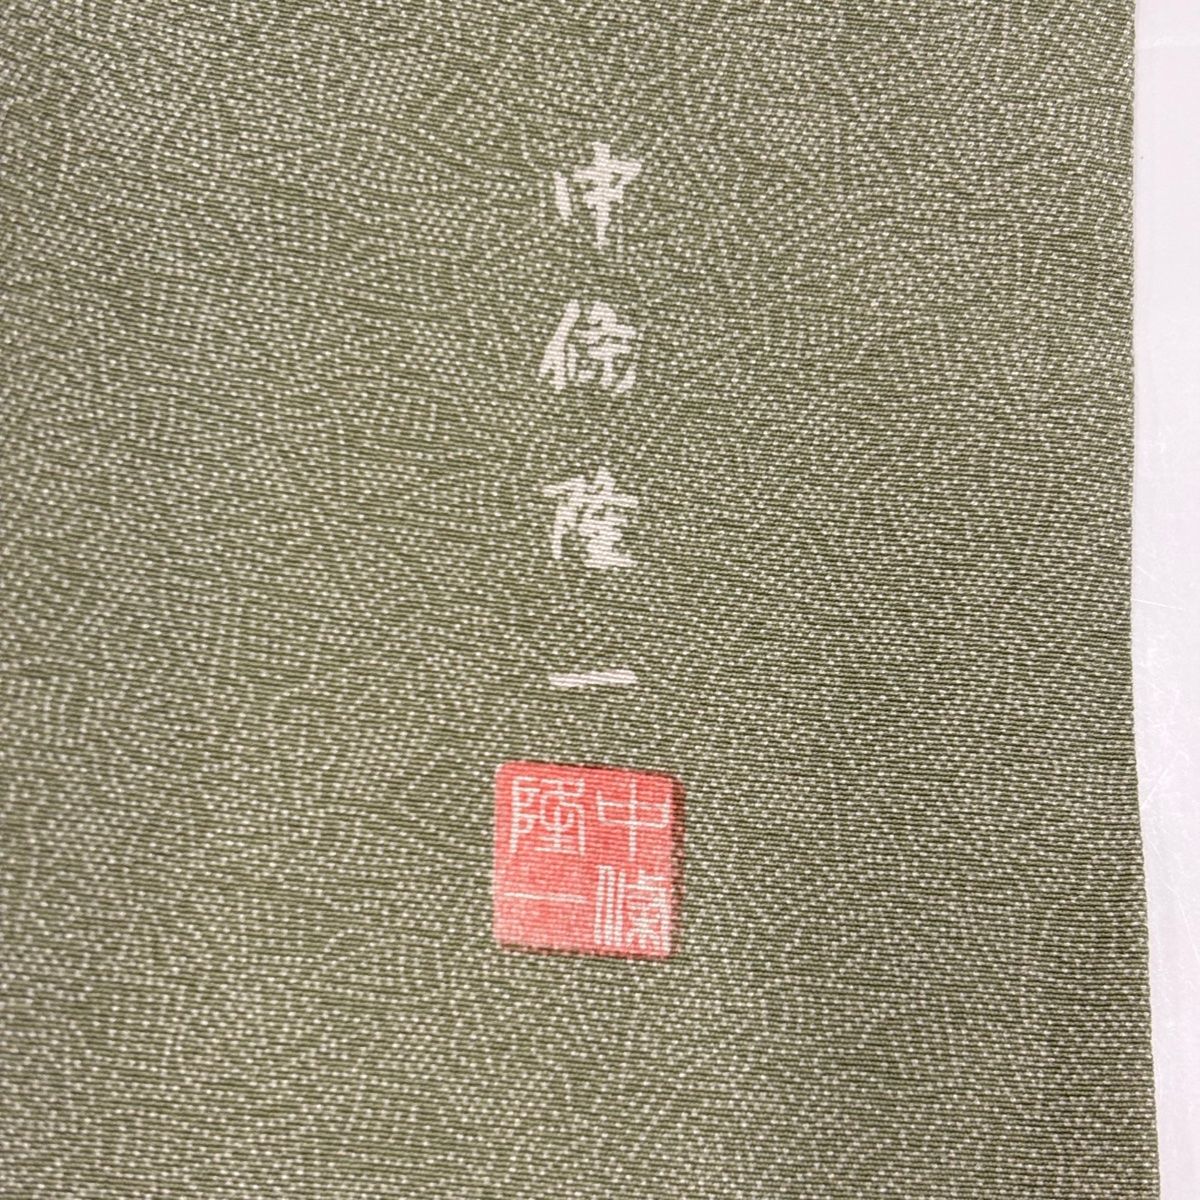 中條隆一
中條
隆一